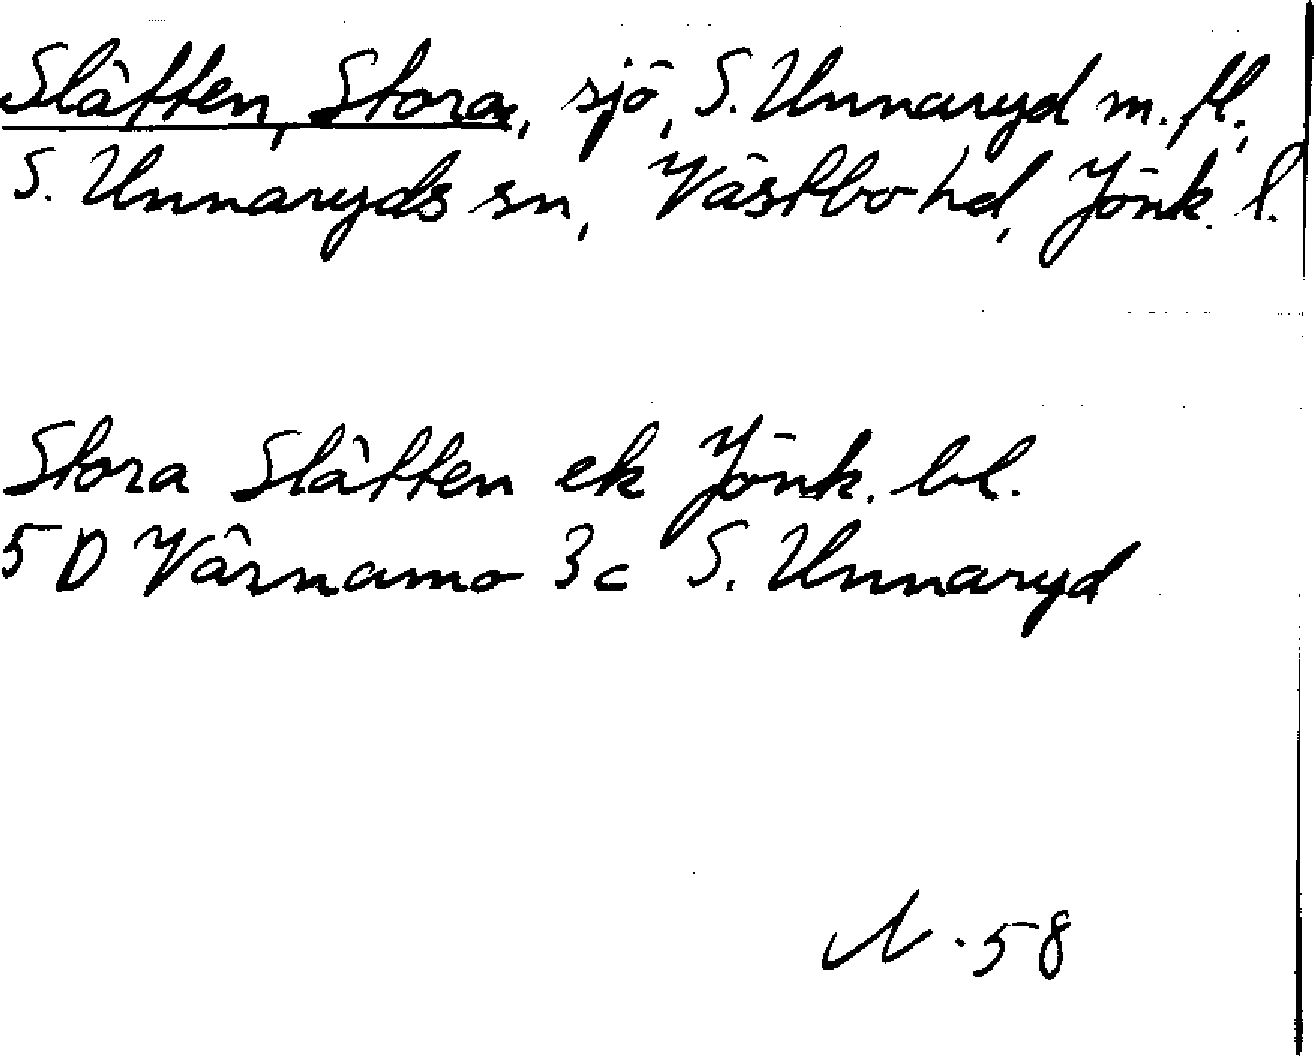 Slätten, Stora, sjö, S. Unnaryd m. fl.,
S. Unnaryds sn, Västbo hd, Jönk. l.
Stora Slätten ek Jönk. bl.
5 D Värnamo 3c S. Unnaryd
N. 58